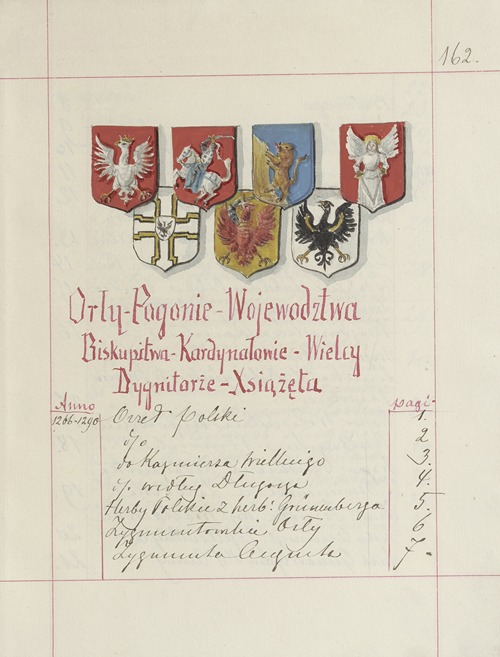 162.
Orły-Pogonie-Województwa
Biskupstwa-Kardynałowie-Wielcy
Dygnitarże-Xsiążęta
Anno pagi-
1266-1290 Orzeł polski 1.
d/o 2
do Kazmierza Wielkiego 3.
d/o według Długosza 4.
Herby Polskie z herb: Grünenberga 5.
Zygmuntowskie Orły 6
Zygmunta Augusta 7-